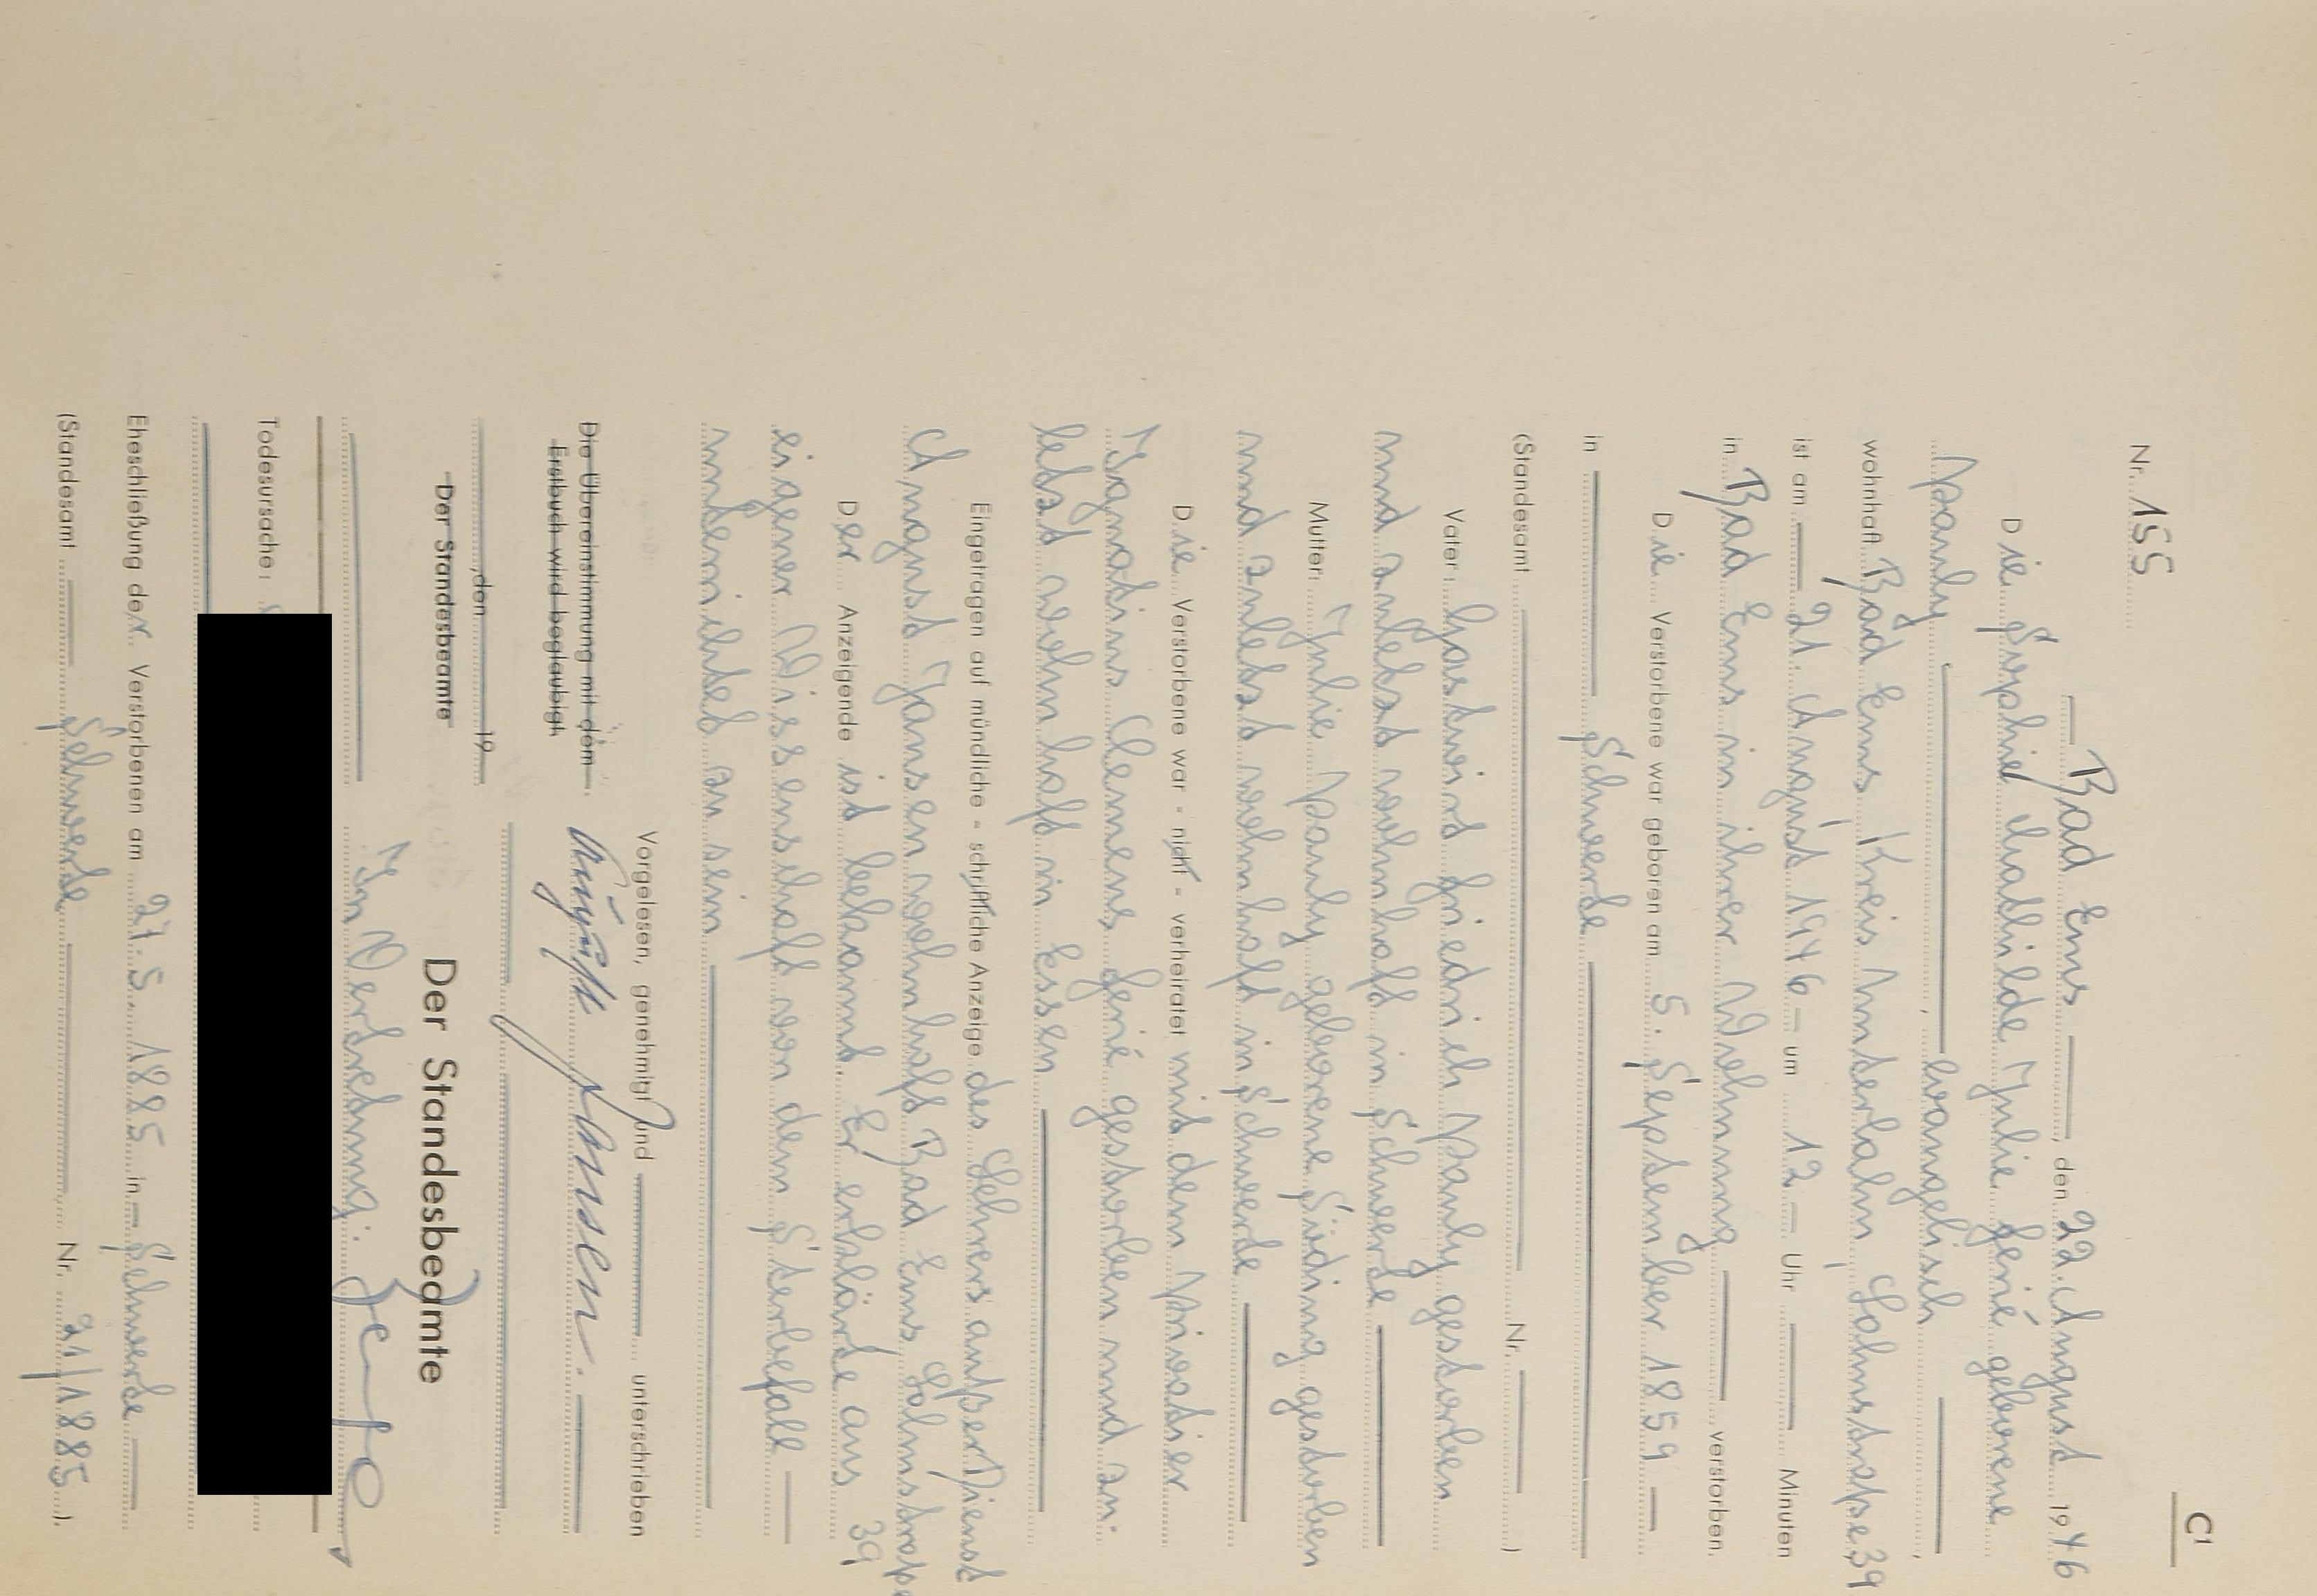 C1
Nr. 155
Bad Ems, den 22. August 1946
Die Sophie Mathilde Julie Gené geborene
Pauly, evangelisch,
wohnhaft Bad Ems Kreis Unterlahn, Lahnstraße 39
ist am 21. August 1946 um 12 Uhr Minuten
in Bad Ems in ihrer Wohnung verstorben.
Die Verstorbene war geboren am 5. September 1859
in Schwerte
(Standesamt Nr. )
Vater: Gastwirt Friedrich Pauly gestorben
und zuletzt wohnhaft in Schwerte
Mutter: Julie Pauly geborene Süding gestorben
und zuletzt wohnhaft in Schwerte
Die Verstorbene war – nicht – verheiratet mit dem Privatier
Ignatius Clemens Gené gestorben und zu-
letzt wohnhaft in Essen
Eingetragen auf mündliche – schriftliche Anzeige des Lehrers außer Dienst
August Jansen wohnhaft Bad Ems Lahnstraße
39
Der Anzeigende ist bekannt. Er erklärte aus
eigener Wissenschaft von dem Sterbefall
unterrichtet zu sein
Vorgelesen, genehmigt und unterschrieben
Die Übereinstimmung mit dem
Erstbuch wird beglaubigt
August Jansen.
, den 19
Der Standesbeamte
Der Standesbeamte
In Vertretung:
Todesursache:
Eheschließung der Verstorbenen am 27.5.1885 in Schwerte
(Standesamt Schwerte Nr. 21/1885).